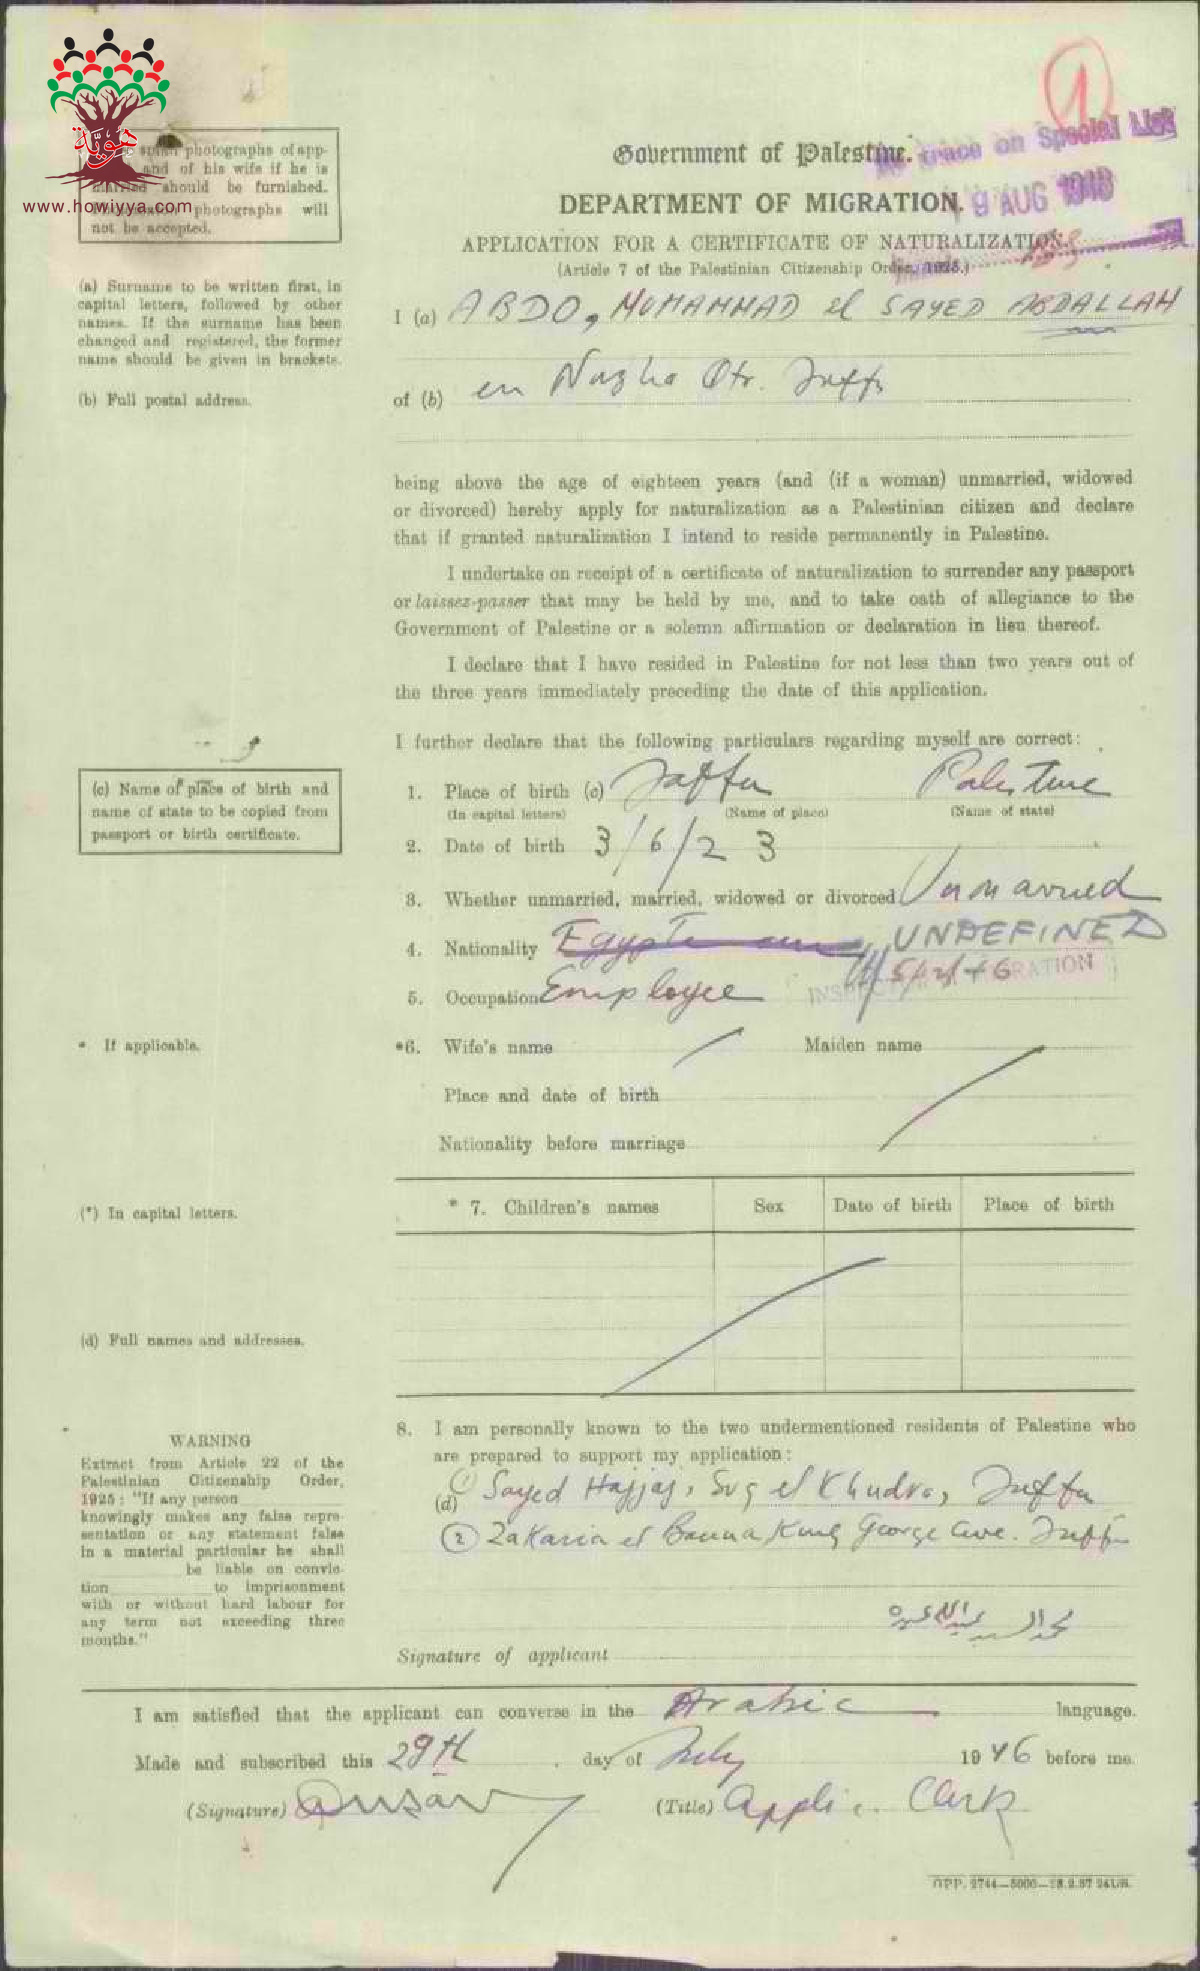 هوية
www.howiyya.com
photographs of app-
and of his wife if he is
married should be furnished.
photographs will
not be accepted.
1
No trace on Special List
9 AUG 1946
Government of Palestine.
DEPARTMENT OF MIGRATION.
APPLICATION FOR A CERTIFICATE OF NATURALIZATION.
(Article 7 of the Palestinian Citizenship Order, 1925.)
(a) Surname to be written first, in
capital letters, followed by other
names. If the surname has been
changed and registered, the former
name should be given in brackets.
(b) Full postal address.
I (a) ABDO, MUHAMMAD el SAYED ABDALLAH
of (b) en Nuzha Qtr. Jaffa
being above the age of eighteen years (and (if a woman) unmarried, widowed
or divorced) hereby apply for naturalization as a Palestinian citizen and declare
that if granted naturalization I intend to reside permanently in Palestine.
I undertake on receipt of a certificate of naturalization to surrender any passport
or laissez-passer that may be held by me, and to take oath of allegiance to the
Government of Palestine or a solemn affirmation or declaration in lieu thereof.
I declare that I have resided in Palestine for not less than two years out of
the three years immediately preceding the date of this application.
I further declare that the following particulars regarding myself are correct:
(c) Name of place of birth and
name of state to be copied from
passport or birth certificate.
1. Place of birth (c) Jaffa Palestine
(In capital letters) (Name of place) (Name of state)
2. Date of birth 3/6/23
3. Whether unmarried, married, widowed or divorced Unmarried
4. Nationality UNDEFINED
5. Occupation Employee
* If applicable.
*6. Wife's name Maiden name
Place and date of birth
Nationality before marriage
(*) In capital letters.
* 7. Children's names Sex Date of birth Place of birth
(d) Full names and addresses.
8. I am personally known to the two undermentioned residents of Palestine who
are prepared to support my application:
(d) (1) Sayed Hajjaj, Suq el Khudra, Jaffa
(2) Zakaria el Banna, King George Ave. Jaffa
WARNING
Extract from Article 22 of the
Palestinian Citizenship Order,
1925: "If any person
knowingly makes any false repre-
sentation or any statement false
in a material particular he shall
be liable on convic-
tion to imprisonment
with or without hard labour for
any term not exceeding three
months."
محمد السيد عبدالله عبده
Signature of applicant
I am satisfied that the applicant can converse in the Arabic language.
Made and subscribed this 29th day of July 1946 before me.
(Signature) (Title) Applic. Clerk
GPP. 2744—5000—18.2.37